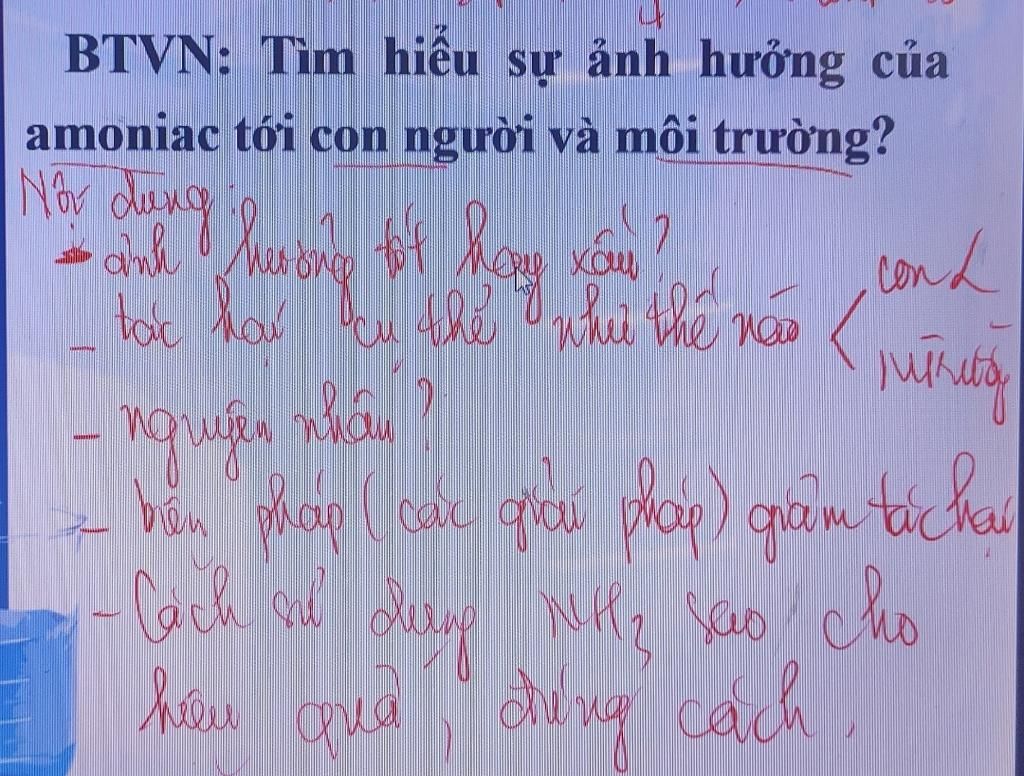 BTVN: Tìm hiểu sự ảnh hưởng của
amoniac tới con người và môi trường?
Nội dung:
- ảnh hưởng tốt hay xấu?
- tác hại cụ thể như thế nào < con
- nguyên nhân?
- biện pháp (các giải pháp) giảm tác hại
- Cách sử dụng NH3 sao cho
hiệu quả, đúng cách.